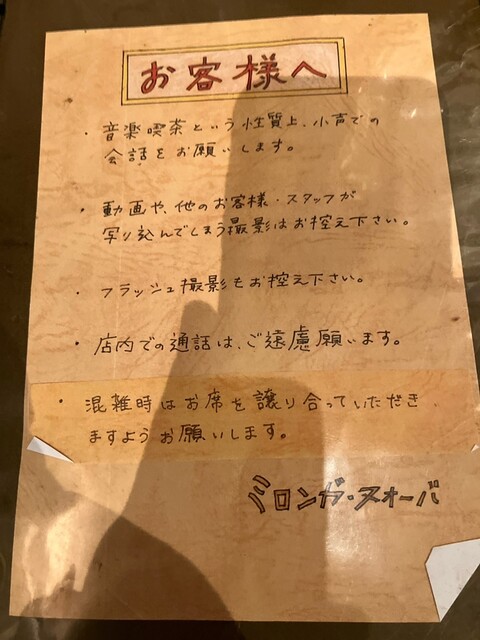 お客様へ
・音楽喫茶という性質上、小声での
会話をお願いします。
・動画や、他のお客様・スタッフが
写り込んでしまう撮影はお控え下さい。
・フラッシュ撮影もお控え下さい。
・店内での通話は、ご遠慮願います。
・混雑時はお席を譲り合っていただき
ますようお願いします。
ミロンガ・ヌオーバ